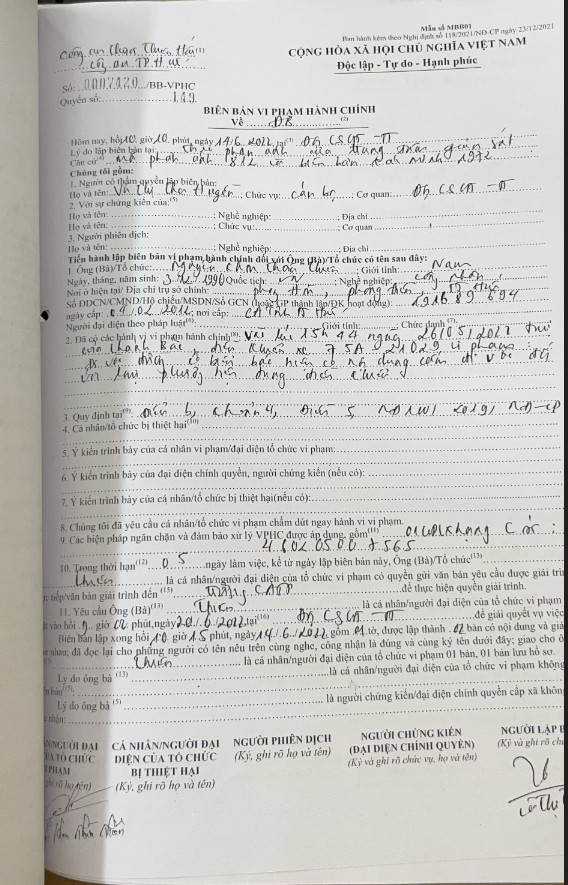 Mẫu số MBB01
Ban hành kèm theo Nghị định số 118/2021/NĐ-CP ngày 23/12/2021
CỘNG HÒA XÃ HỘI CHỦ NGHĨA VIỆT NAM
Độc lập - Tự do - Hạnh phúc
Công an (1)
công an TP H
Số: 0007420 /BB-VPHC
Quyển số: 149
BIÊN BẢN VI PHẠM HÀNH CHÍNH
Về ĐB (2)
Hôm nay, hồi 10 giờ 10 phút, ngày 14/6/2022 tại(3) Đội CSGT - TT
Lý do lập biên bản tại phản ánh của trung giám sát
Căn cứ(4) phản ánh 812 và biên bản 1972
Chúng tôi gồm:
1. Người có thẩm quyền lập biên bản:
Họ và tên: Chức vụ: cán bộ Cơ quan: Đội CSGT - TT
2. Với sự chứng kiến của:(5)
Họ và tên: Nghề nghiệp: Địa chỉ
Họ và tên: Chức vụ: Cơ quan
3. Người phiên dịch:
Họ và tên: Nghề nghiệp: Địa chỉ
Tiến hành lập biên bản vi phạm hành chính đối với Ông (Bà)/Tổ chức có tên sau đây:
1. Ông (Bà)/Tổ chức: Giới tính: Nam
Ngày, tháng, năm sinh: 1990 Quốc tịch: VN Nghề nghiệp: công nhân
Nơi ở hiện tại/ Địa chỉ trụ sở chính: phong điền,
Số ĐDCN/CMND/Hộ chiếu/MSDN/Số GCN (hoặc GP thành lập/ĐK hoạt động): 191689694
ngày cấp: 04/02/2012; nơi cấp: CA tỉnh TT Huế
Người đại diện theo pháp luật(6): Giới tính: Chức danh(7):
2. Đã có các hành vi vi phạm hành chính(8): Vào lúc 15h 44 ngày 26/05/2022
điều khiển xe 75A 21029 vi phạm:
đi vào có biển báo hiệu có nội dung cấm đi vào đối
với loại phương tiện đang điều khiển
3. Quy định tại(9): Điểm b, khoản 4, Điều 5, NĐ 100/ 2019/ NĐ-CP
4. Cá nhân/tổ chức bị thiệt hại(10)
5. Ý kiến trình bày của cá nhân vi phạm/đại diện tổ chức vi phạm:
6. Ý kiến trình bày của đại diện chính quyền, người chứng kiến (nếu có):
7. Ý kiến trình bày của cá nhân/tổ chức bị thiệt hại(nếu có):
8. Chúng tôi đã yêu cầu cá nhân/tổ chức vi phạm chấm dứt ngay hành vi vi phạm.
9. Các biện pháp ngăn chặn và đảm bảo xử lý VPHC được áp dụng, gồm(11) 01
10. Trong thời hạn(12) 05 ngày làm việc, kể từ ngày lập biên bản này, Ông (Bà)/Tổ chức(13)
Thiên là cá nhân/người đại diện của tổ chức vi phạm có quyền gửi văn bản yêu cầu được giải trì
tiếp/văn bản giải trình đến (15) để thực hiện quyền giải trình.
11. Yêu cầu Ông (Bà)(13) Thiên là cá nhân/người đại diện của tổ chức vi phạm
vào hồi giờ 00 phút, ngày /6/2022 tại(16) Đội CSGT - TT để giải quyết vụ việc
Biên bản lập xong hồi 10 giờ 15 phút, ngày 14/6/2022 gồm 01 tờ, được lập thành 02 bản có nội dung và giá
nhau; đã đọc lại cho những người có tên nêu trên cùng nghe, công nhận là đúng và cùng ký tên dưới đây; giao cho ô
Thiên là cá nhân/người đại diện của tổ chức vi phạm 01 bản, 01 bản lưu hồ sơ.
Lý do ông bà (13) là cá nhân/người đại diện của tổ chức vi phạm không
Lý do ông bà (5) là người chứng kiến/đại diện chính quyền cấp xã khôn
nhận:
NGƯỜI ĐẠI
TỔ CHỨC
PHẠM
ghi rõ họ tên)
CÁ NHÂN/NGƯỜI ĐẠI
DIỆN CỦA TỔ CHỨC
BỊ THIỆT HẠI
(Ký, ghi rõ họ và tên)
NGƯỜI PHIÊN DỊCH
(Ký, ghi rõ họ và tên)
NGƯỜI CHỨNG KIẾN
(ĐẠI DIỆN CHÍNH QUYỀN)
(Ký và ghi rõ chức vụ, họ và tên)
NGƯỜI LẬP B
(Ký và ghi rõ ch